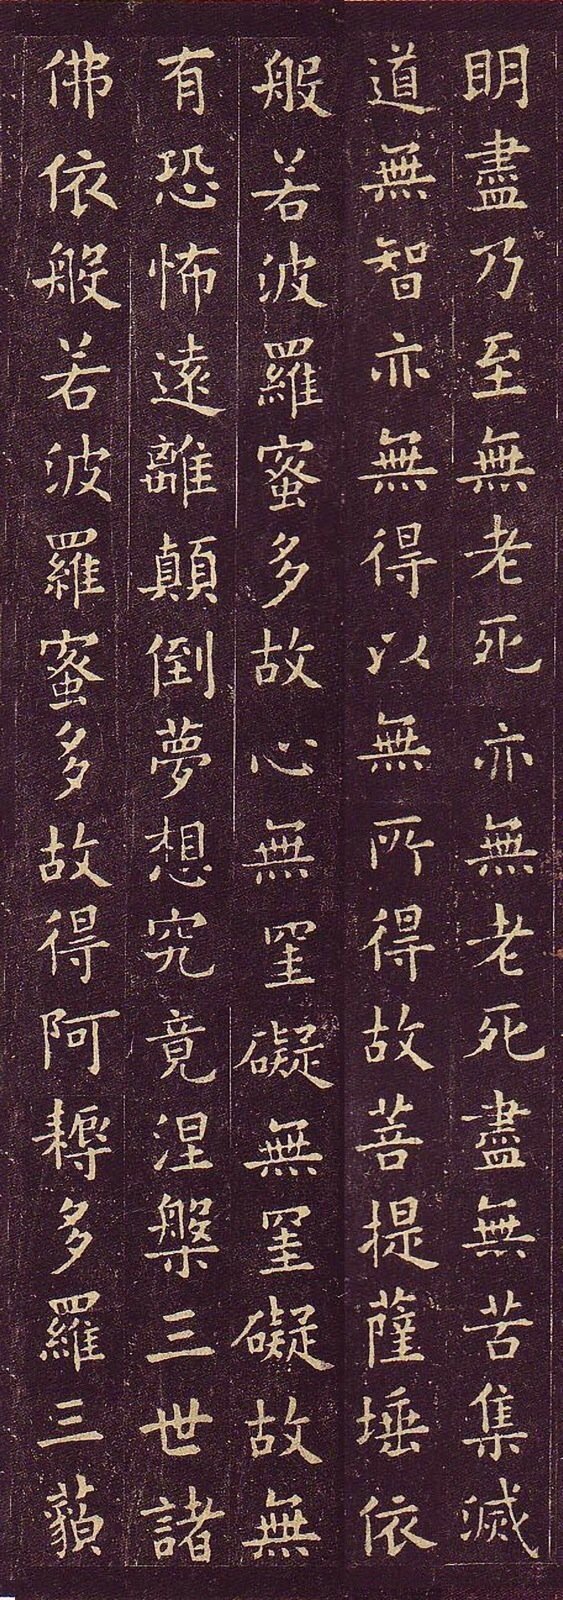 明盡乃至無老死亦無老死盡無苦集滅
道無智亦無得以無所得故菩提薩埵依
般若波羅蜜多故心無罣礙無罣礙故無
有恐怖遠離顛倒夢想究竟涅槃三世諸
佛依般若波羅蜜多故得阿耨多羅三藐